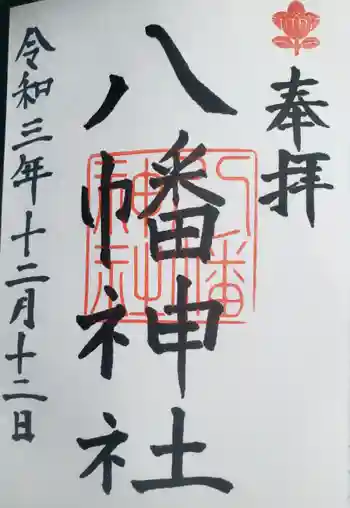 奉拝
八幡神社
八幡神社
令和三年十二月十二日